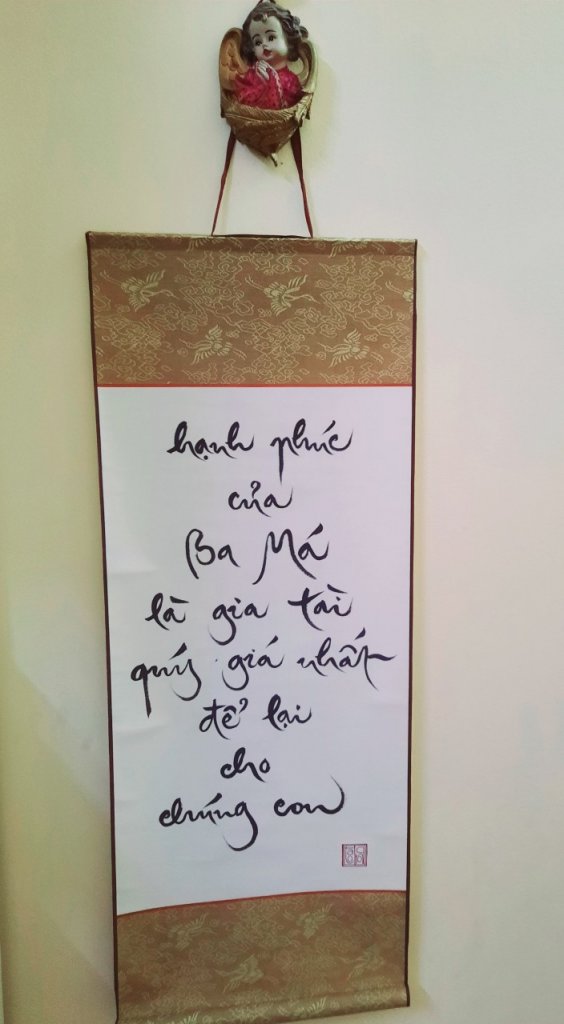 hạnh phúc
của
Ba Má
là gia tài
quý giá nhất
để lại
cho
chúng con